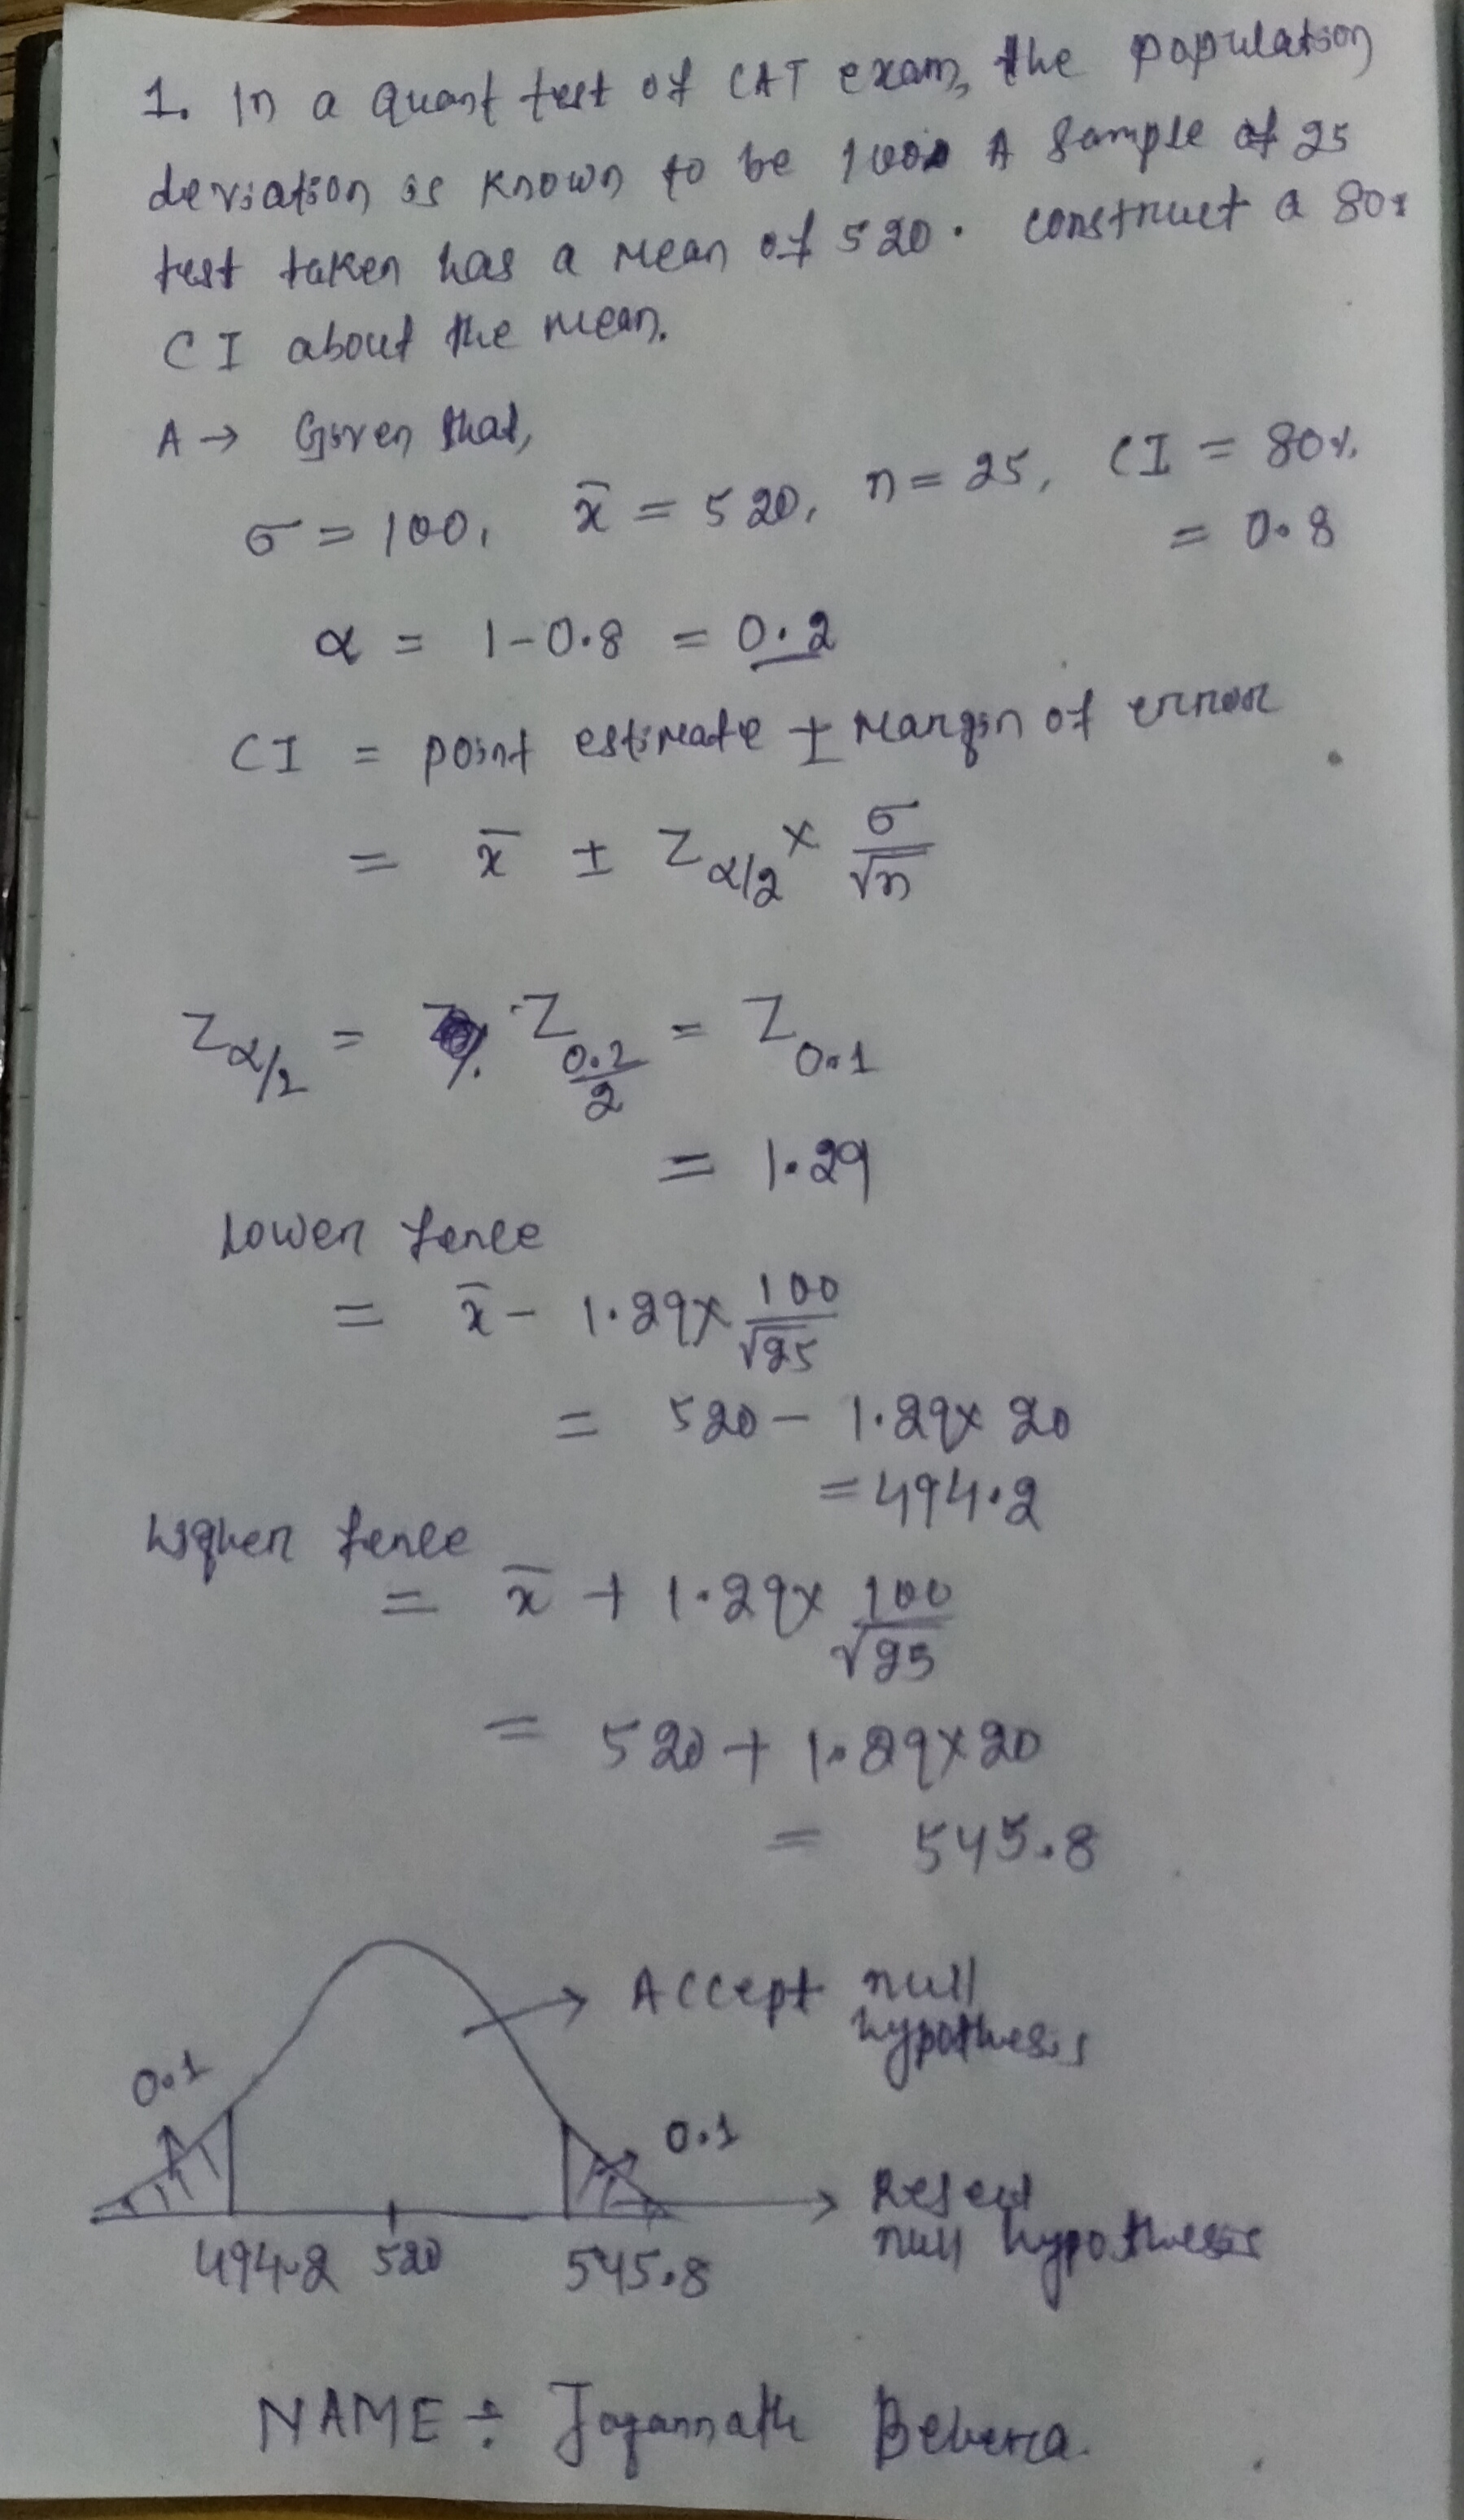 1. In a quant test of CAT exam, the population
deviation is known to be 100. A sample of 25
test taken has a mean of 520. construct a 80%
CI about the mean.
A → Given that,
σ = 100, x̄ = 520, n = 25, CI = 80%
= 0.8
α = 1-0.8 = 0.2
CI = point estimate ± Margin of error
= x̄ ± Z α/2 × σ/√n
Z α/2 = Z 0.2/2 = Z 0.1
= 1.29
Lower fence
= x̄ - 1.29 × 100/√25
= 520 - 1.29 × 20
= 494.2
higher fence
= x̄ + 1.29 × 100/√25
= 520 + 1.29 × 20
= 545.8
Accept null
hypothesis
0.1
0.1
Reject
null hypothesis
494.2 520 545.8
NAME ÷ Jagannath Behera.